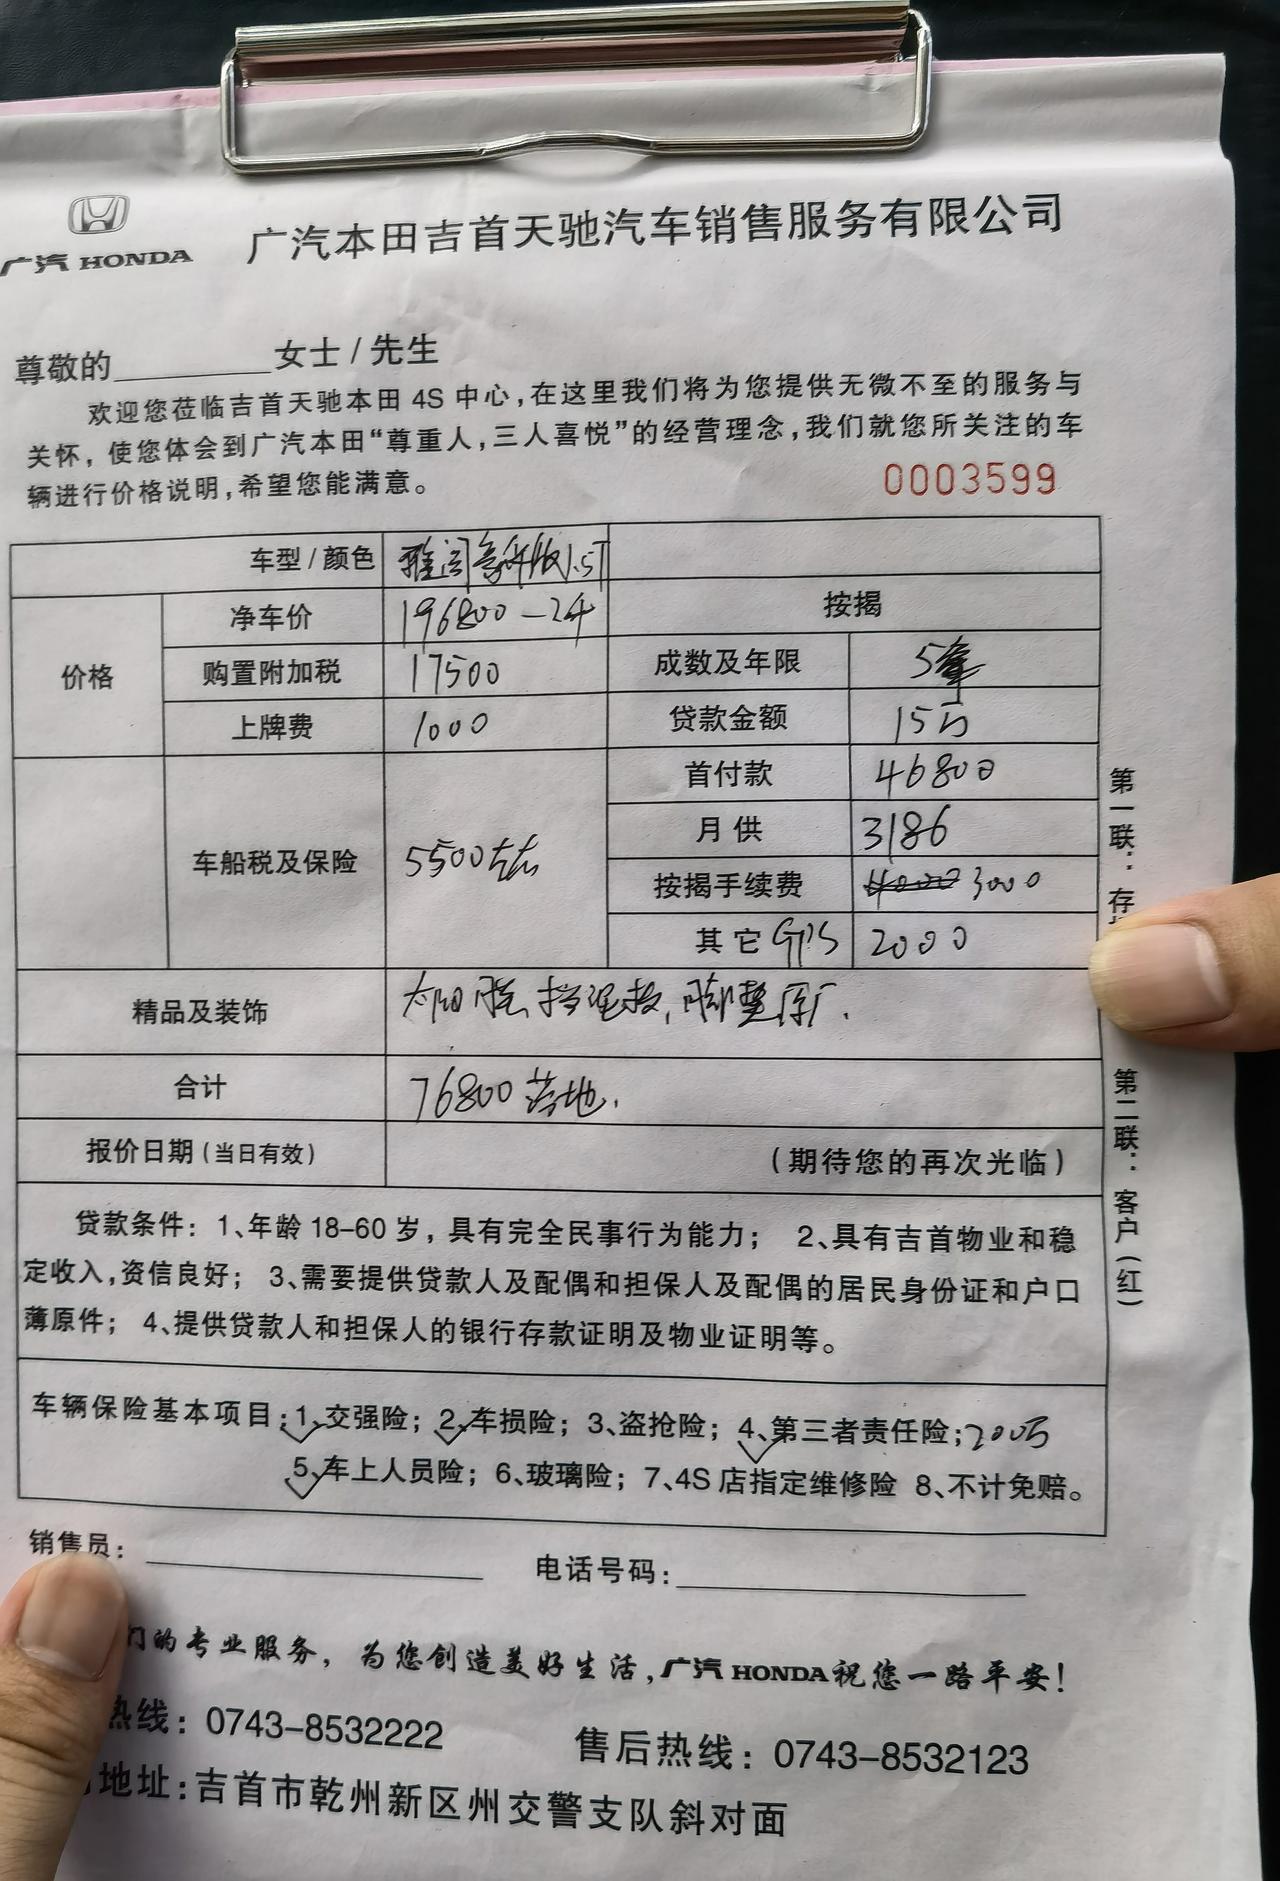 广汽 HONDA
广汽本田吉首天驰汽车销售服务有限公司
尊敬的 女士 / 先生
欢迎您莅临吉首天驰本田 4S 中心,在这里我们将为您提供无微不至的服务与
关怀, 使您体会到广汽本田“尊重人,三人喜悦”的经营理念,我们就您所关注的车
辆进行价格说明,希望您能满意。
0003599
车型 / 颜色 雅阁豪华版1.5T
价格
净车价 196800-2千
按揭
购置附加税 17500
成数及年限 5
上牌费 1000
贷款金额 15万
首付款 46800
车船税及保险 5500左右
月供 3186
按揭手续费 3000
其它 GPS 2000
精品及装饰 太阳膜,挡泥板,脚垫原厂.
合计 76800 落地.
报价日期(当日有效) (期待您的再次光临)
贷款条件: 1、年龄 18-60 岁, 具有完全民事行为能力; 2、具有吉首物业和稳
定收入,资信良好; 3、需要提供贷款人及配偶和担保人及配偶的居民身份证和户口
薄原件; 4、提供贷款人和担保人的银行存款证明及物业证明等。
车辆保险基本项目:1、交强险; 2、车损险; 3、盗抢险; 4、第三者责任险;200万
5、车上人员险; 6、玻璃险; 7、4S 店指定维修险 8、不计免赔。
第一联: 存
第二联: 客户(红)
销售员: 电话号码:
们的专业服务, 为您创造美好生活,广汽 HONDA 祝您一路平安!
热线: 0743-8532222 售后热线: 0743-8532123
地址:吉首市乾州新区州交警支队斜对面